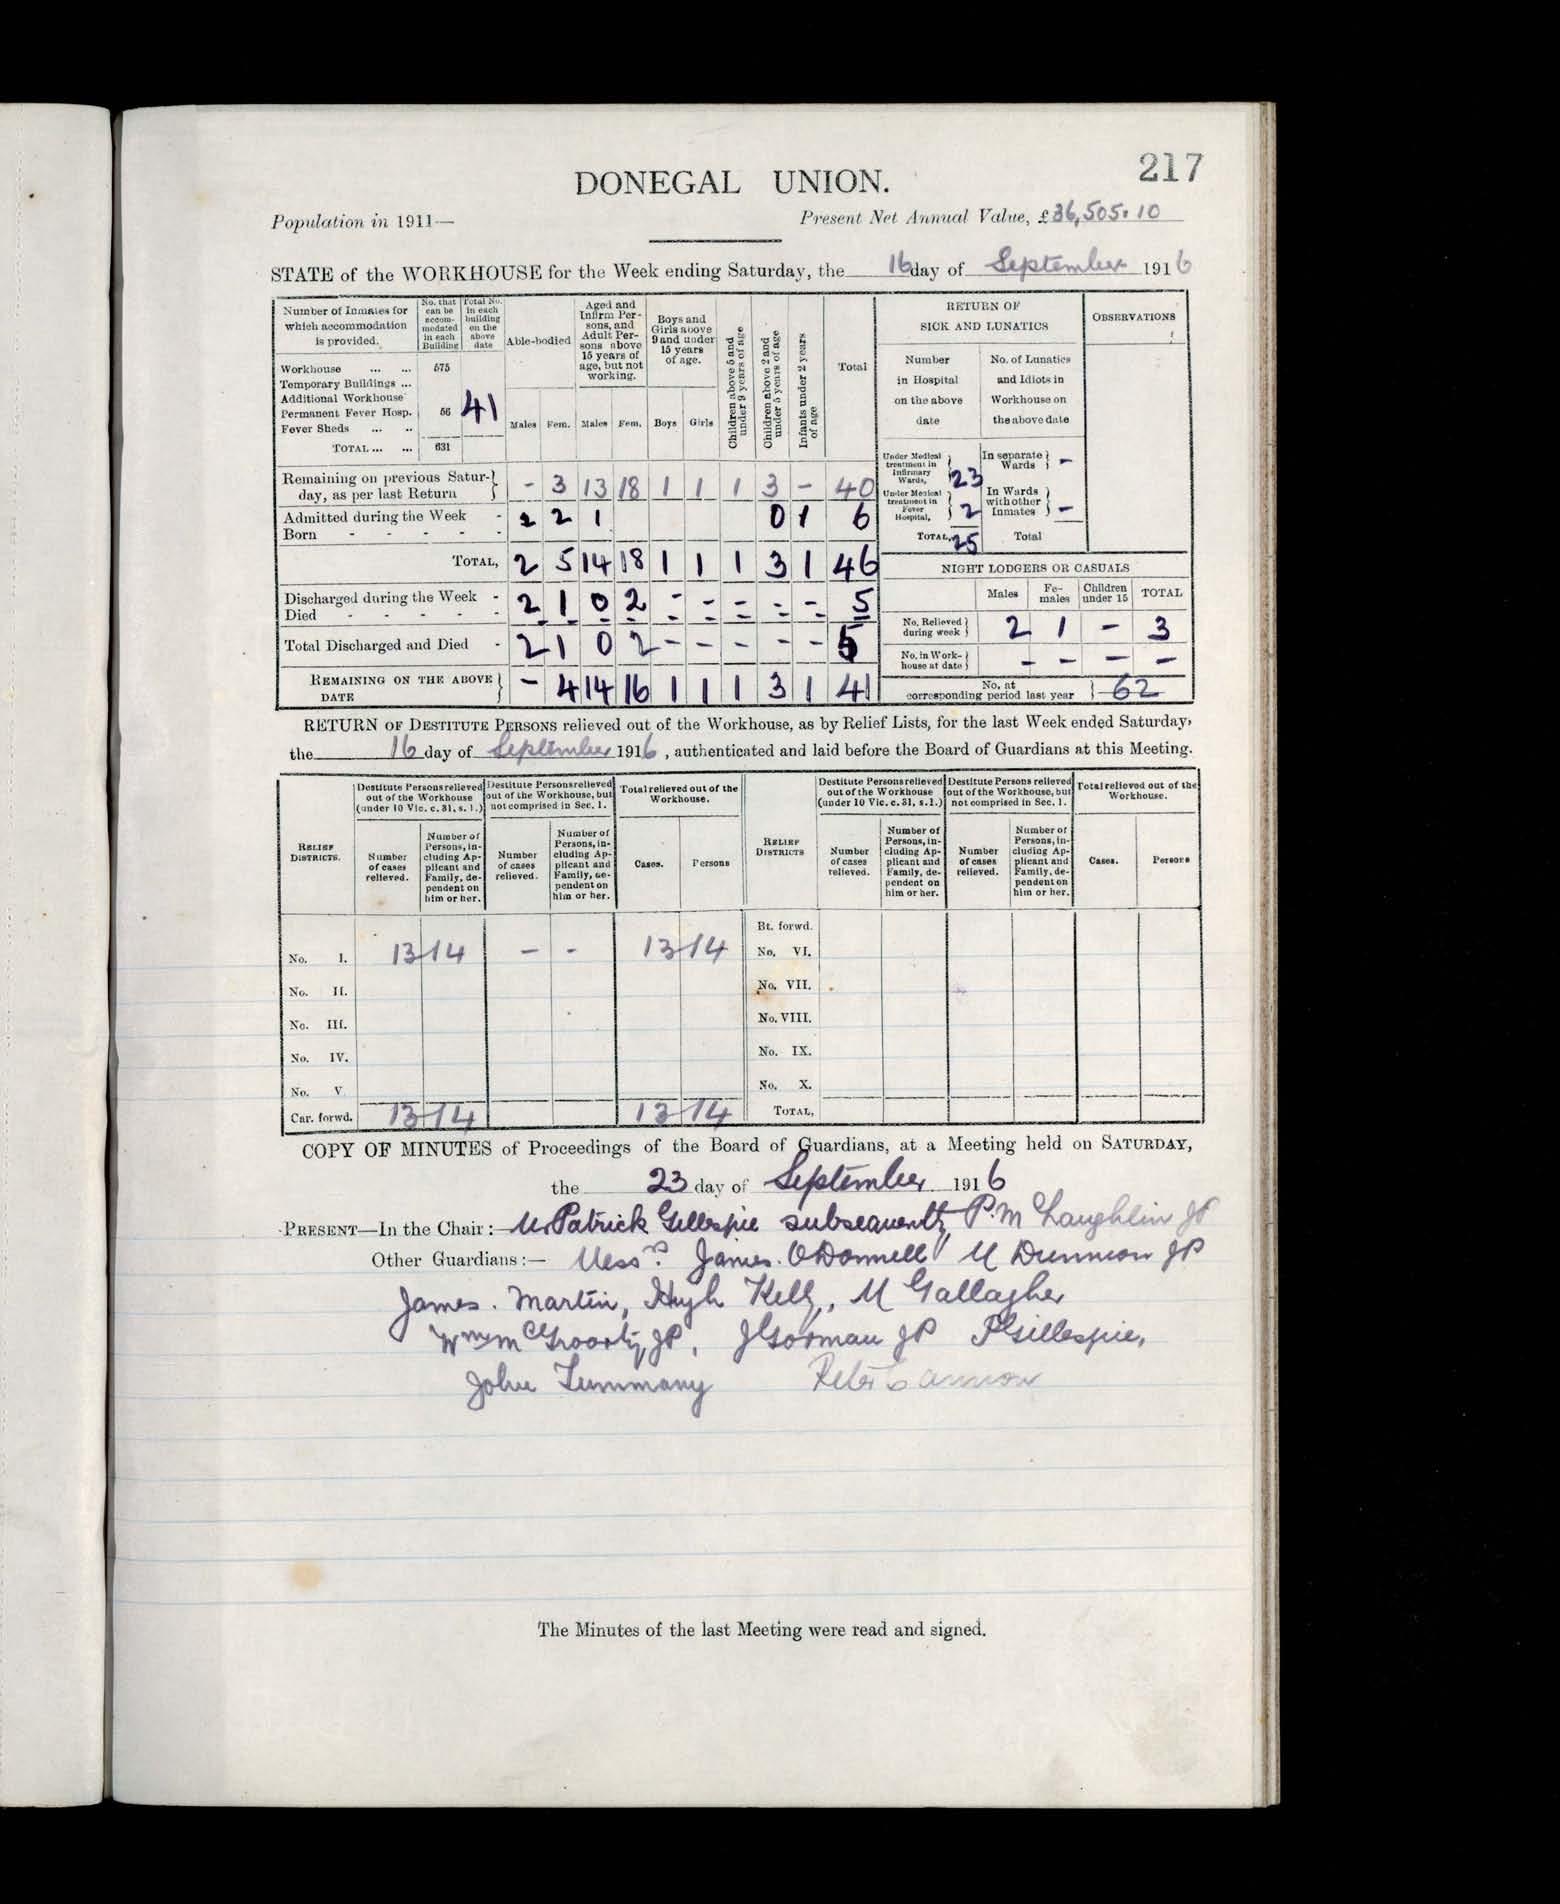 217
DONEGAL UNION.
Population in 1911—
Present Net Annual Value, £36,505.10
STATE of the WORKHOUSE for the Week ending Saturday, the 16 day of September 1916
Number of Inmates for which accommodation is provided.
No. that can be accommodated in each Building
Total No. in each building on the above date
Able-bodied
Aged and Infirm Persons, and Adult Persons above 15 years of age, but not working.
Boys and Girls above 9 and under 15 years of age.
Children above 5 and under 9 years of age
Children above 2 and under 5 years of age
Infants under 2 years of age
Total
Males Fem. Males Fem. Boys Girls
Workhouse ... ... 575
Temporary Buildings ...
Additional Workhouse
Permanent Fever Hosp. 56 41
Fever Sheds ... ..
TOTAL ... ... 631
Remaining on previous Saturday, as per last Return - 3 13 18 1 1 1 3 - 40
Admitted during the Week - 2 2 1 0 1 6
Born - - - - -
TOTAL, 2 5 14 18 1 1 1 3 1 46
Discharged during the Week - 2 1 0 2 - - - - - 5
Died - - - - -
Total Discharged and Died - 2 1 0 2 - - - - - 5
REMAINING ON THE ABOVE DATE - 4 14 16 1 1 1 3 1 41
RETURN OF SICK AND LUNATICS
OBSERVATIONS
Number in Hospital on the above date
No. of Lunatics and Idiots in Workhouse on the above date
Under Medical treatment in Infirmary Wards, 23
In separate Wards -
Under Medical treatment in Fever Hospital, 2
In Wards with other Inmates -
TOTAL, 25 Total
NIGHT LODGERS OR CASUALS
Males Females Children under 15 TOTAL
No. Relieved during week 2 1 - 3
No. in Workhouse at date - - - -
No. at corresponding period last year 62
RETURN OF DESTITUTE PERSONS relieved out of the Workhouse, as by Relief Lists, for the last Week ended Saturday,
the 16 day of September 1916, authenticated and laid before the Board of Guardians at this Meeting.
RELIEF DISTRICTS.
Destitute Persons relieved out of the Workhouse (under 10 Vic. c. 31, s. 1.)
Destitute Persons relieved out of the Workhouse, but not comprised in Sec. 1.
Total relieved out of the Workhouse.
Number of cases relieved.
Number of Persons, including Applicant and Family, dependent on him or her.
Number of cases relieved.
Number of Persons, including Applicant and Family, dependent on him or her.
Cases.
Persons
No. I. 13 14 - - 13 14
No. II.
No. III.
No. IV.
No. V
Car. forwd. 13 14 13 14
RELIEF DISTRICTS
Destitute Persons relieved out of the Workhouse (under 10 Vic. c. 31, s. 1.)
Destitute Persons relieved out of the Workhouse, but not comprised in Sec. 1.
Total relieved out of the Workhouse.
Number of cases relieved.
Number of Persons, including Applicant and Family, dependent on him or her.
Number of cases relieved.
Number of Persons, including Applicant and Family, dependent on him or her.
Cases.
Persons
Bt. forwd.
No. VI.
No. VII.
No. VIII.
No. IX.
No. X.
TOTAL,
COPY OF MINUTES of Proceedings of the Board of Guardians, at a Meeting held on SATURDAY,
the 23 day of September 1916
PRESENT—In the Chair:— Mr Patrick Gillespie subsequently P. McLaughlin JP
Other Guardians:— Messrs. James. O'Donnell M Dunnion JP
James. Martin, Hugh Kelly, M Gallagher
Wm McGroarty, JP, J Gorman JP P Gillespie,
John Tummany Peter Cannon
The Minutes of the last Meeting were read and signed.